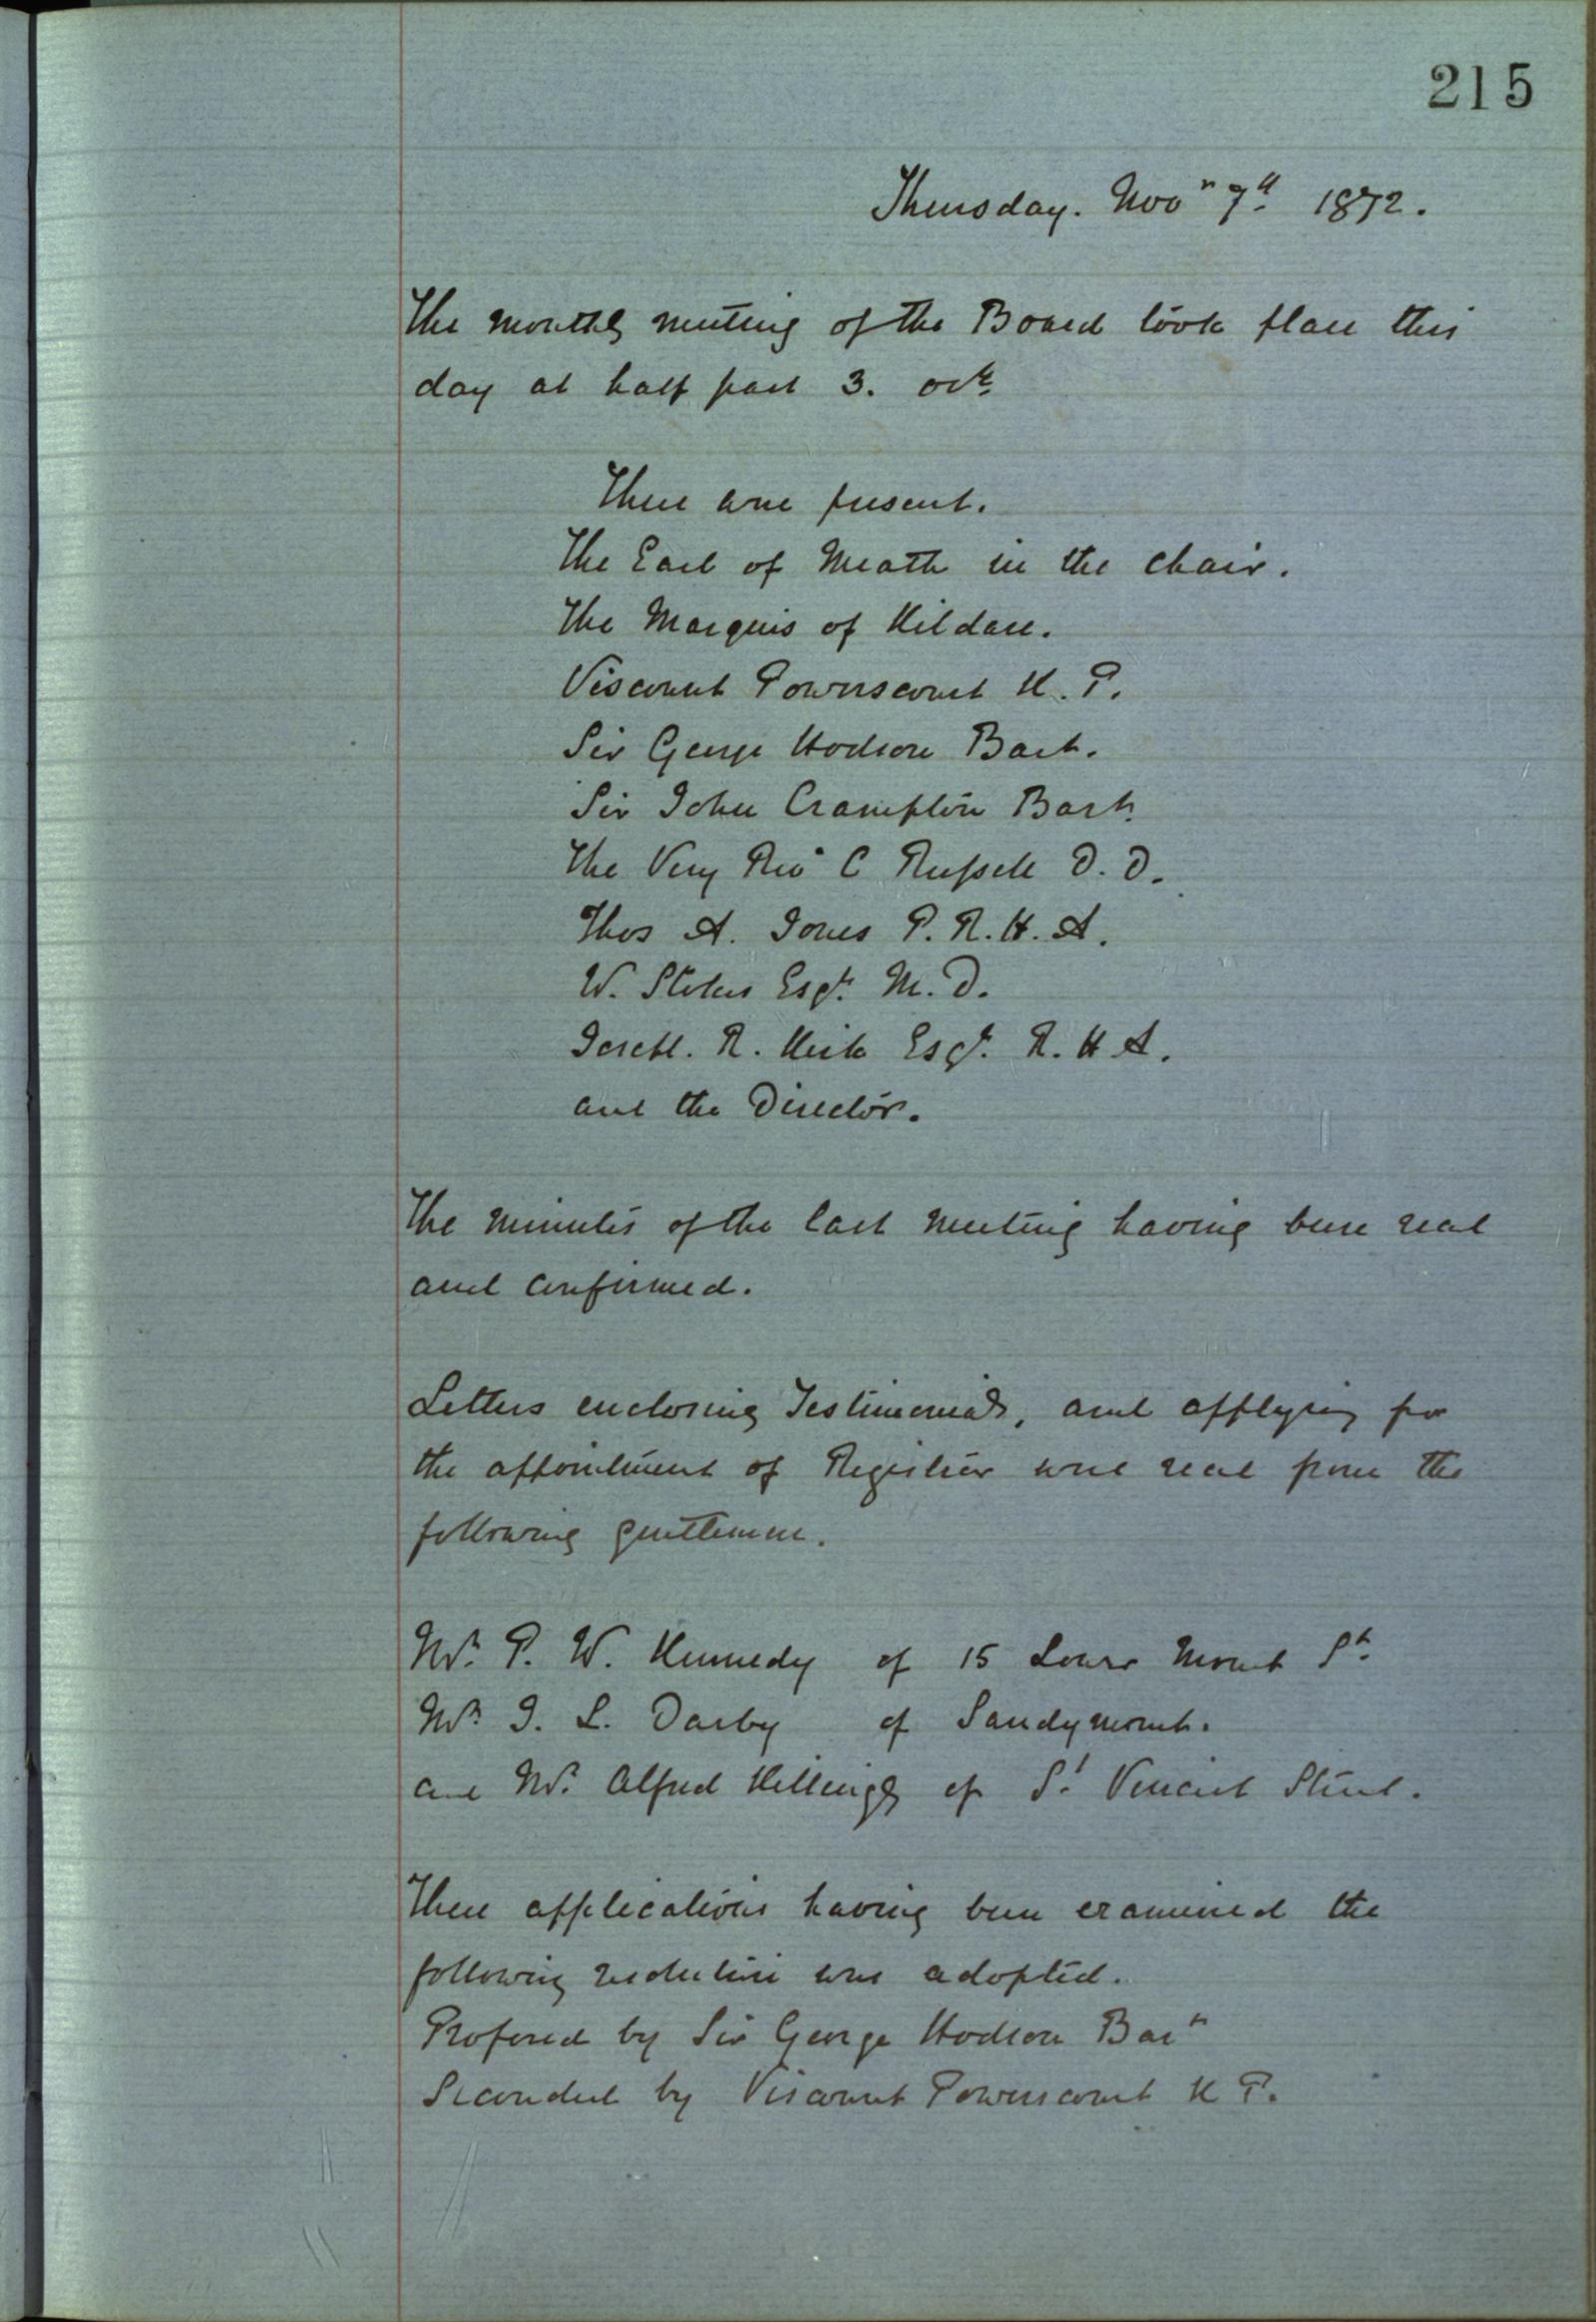 215
Thursday. Novr 7th 1872.
The monthly meeting of the Board took place this
day at half past 3. ock
There were present.
The Earl of Meath in the chair.
The Marquis of Kildare.
Viscount Powerscourt K. P.
Sir George Hodson Bart.
Sir John Crampton Bart.
The Very Revd C Russell D. D.
Thos A. Jones P. R. H. A.
W. Stokes Esqr. M. D.
R. Kirk Esqr. R. H A.
and the Director.
The minutes of the last meeting having been read
and confirmed.
Letters enclosing Testimonials, and applying for
the appointment of Registrar were read from the
following gentlemen.
Mr. P. W. Kennedy of 15 Lower Mount St.
Mr. J. L. Darby of Sandymount.
and Mr. Alfred of St Vincent Street.
These applications having been examined the
following resolution was adopted.
Proposed by Sir George Hodson Bart
Seconded by Viscount Powerscourt K P.